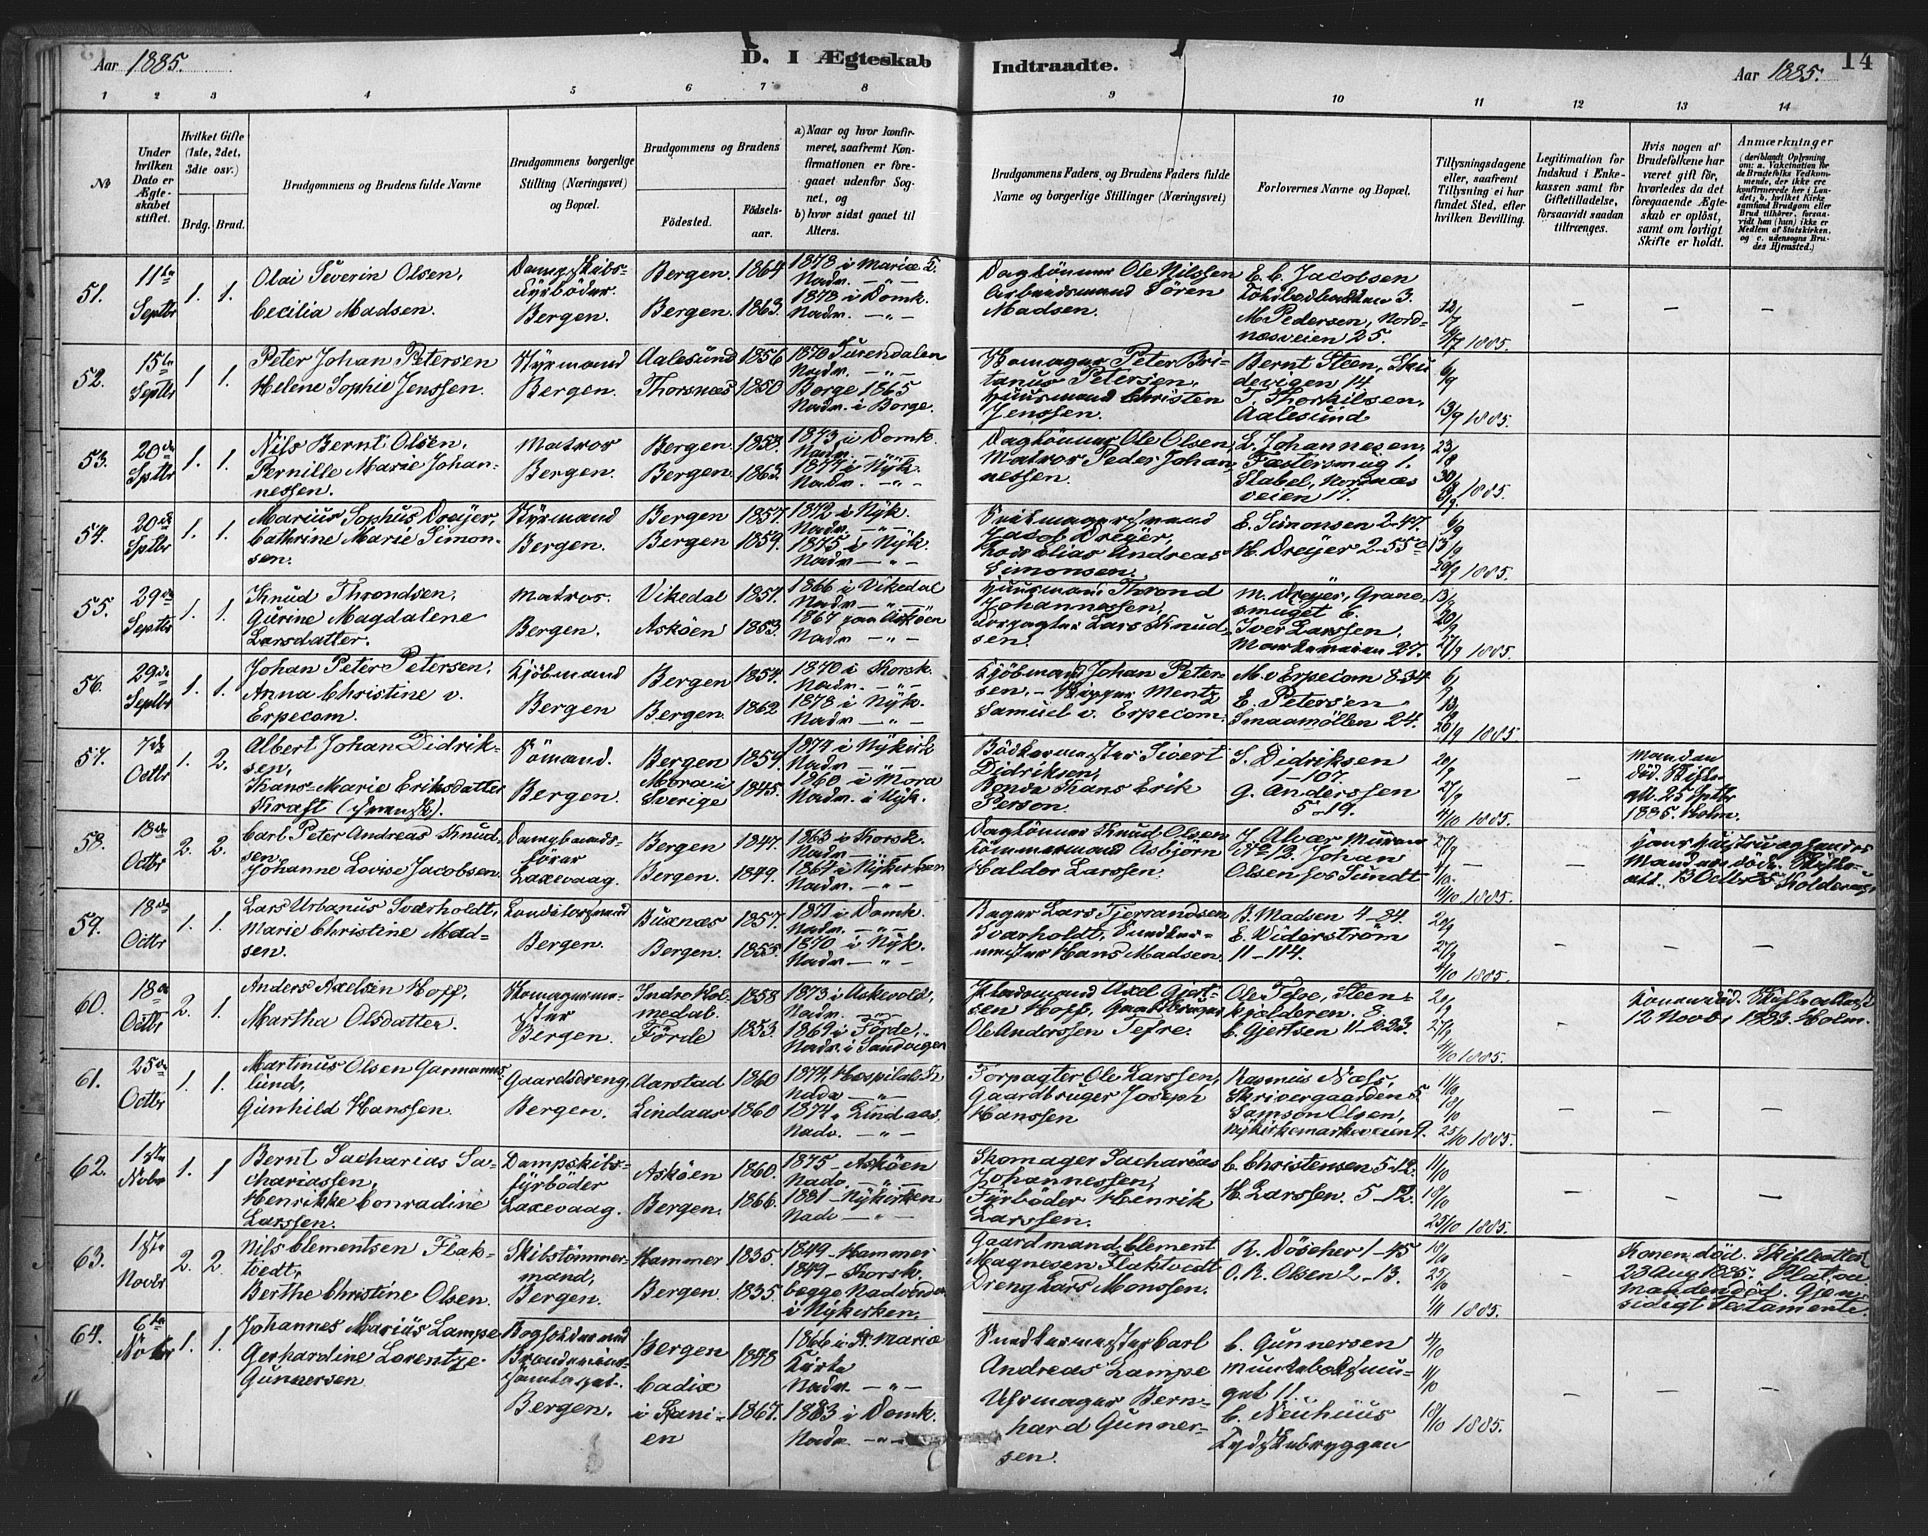 Aar 1885. D. I Ægteskab
Indtraadte. Aar 1885. 14
1 2 3 4 5 6 7 8 9 10 11 12 13 14
No
Under hvilken Dato er Ægteskabet stiftet.
Hvilket Gifte (1ste, 2det, 3die osv.)
Brdg. Brud.
Brudgommens og Brudens fulde Navne
Brudgommens borgerlige Stilling (Næringsvei) og Bopæl.
Brudgommens og Brudens
Fødested. Fødselsaar.
a) Naar og hvor konfirmeret, saafremt Konfirmationen er foregaaet udenfor Sognet, og
b) hvor sidst gaaet til Alters.
Brudgommens Faders, og Brudens Faders fulde Navne og borgerlige Stillinger (Næringsvei)
Forlovernes Navne og Bopæl.
Tillysningsdagene eller, saafremt Tillysning ei har fundet Sted, efter hvilken Bevilling.
Legitimation for Indskud i Enkekassen samt for Giftetilladelse, forsaavidt saadan tiltrænges.
Hvis nogen af Brudefolkene har været gift før, hvorledes da det foregaaende Ægteskab er opløst, samt om lovligt Skifte er holdt.
Anmærkninger
51. 11te Septbr 1. 1.
Olai Severin Olsen,
Cecilia Madsen.
Dampskibs-
fyrböder.
Bergen.
Bergen. 1864
Bergen. 1863.
1878 i Mariæ
Nadv. — " —
1878 i Domk.
Nadv. — " —
Daglönner Ole Nilssen
Arbeidsmand Sören
Madsen.
E. C. Jacobsen
M. Pedersen, Nord-
næsveien 25.
1885.
52. 15te Septbr 1. 1.
Peter Johan Petersen
Helene Sophie Jenssen.
Styrmand
Bergen.
Aalesund 1856
Thorsnæs 1850
1870
Nadv. — " —
Borge 1865
Nadv. i Borge.
Skomager Peter Bri-
tanus Petersen,
Huusmand Christen
Jenssen.
Bernt Steen, Sku
devigen 14
T. Thorkilsen,
Aalesund
6/9 13/9 1885.
53. 20de Septbr 1. 1.
Nils Bernt Olsen,
Pernille Marie Johan-
nessen.
Matros
Bergen.
Bergen. 1853.
Bergen. 1863.
1873 i Domk.
Nadv. — " —
1877 i Nÿk.
Nadv. — " —
Daglönner Ole Olsen,
Matros Peder Johan-
nessen.
L. Johannesen,
Fastersmug 1.
Stabel, Nordnæs
veien 17.
1885.
54. 20de Septbr 1. 1.
Marius Sophus Dreÿer,
Cathrine Marie Simon-
sen.
Styrmand
Bergen.
Bergen 1857.
Bergen 1859.
1872 i Nÿk.
Nadv. — " —
1875 i Nÿk.
Nadv. — " —
Jacob Dreÿer,
Elias Andreas
Simonsen.
E. Simonsen 2-47.
H. Dreÿer 2-55
6/9 13/9 20/9 1885.
55. 29de Septbr 1. 1.
Knud Throndsen,
Gurine Magdalene
Larsdatter.
Matros.
Bergen.
Vikedal 1857.
Asköen 1853.
1866 i Vikedal
Nadv. — " —
1867 paa Asköen
Nadv. — " —
Huusmand Thrond
Johannessen,
Forpagter Lars Knud-
sen.
M. Dreÿer, Grane-
smuget 6.
Iver Larssen,
Markeveien 27.
13/9 20/9 27/9 1885.
56. 29de Septbr 1. 1.
Johan Peter Petersen,
Anna Christine v.
Erpecom.
Kjöbmand
Bergen
Bergen 1854.
Bergen. 1862
1870 i Korsk.
Nadv. — " —
1878 i Nÿk.
Nadv. — " —
Kjöbmand Johan Peter-
sen, — Skipper Mentz
Samuel v. Erpecom.
M. v Erpecom 8-34
E. Petersen
Smaamöllen 24.
6/9 13/9 20/9 1885.
57. 7de Octbr 1. 2.
Albert Johan Didrik-
sen,
Hans-Marie Eriksdatter
Kraft (svensk).
Sömand.
Bergen.
Bergen 1859.
Mora i
Sverige 1845.
1874 i Nÿkirk
Nadv. — " —
1860 i Mora
Nadv. i Nÿk.
Bödkermester Sivert
Didriksen,
Bonde Hans Erik
Person.
S. Didriksen
1-107.
G. Anderssen
5-19.
20/9 27/9 4/10 1885.
Manden
död. Skifte
att. 25 Septbr
1885. Holm.
58. 18de Octbr 2. 2.
Carl Peter Andreas Knud-
sen,
Johanne Lovise Jacobsen.
Laxevaag.
Bergen 1847.
Bergen. 1849.
1863 i Korsk.
Nadv. —
1867 i Nÿkirken
Nadv. — " —
Daglönner Knud Olsen
Tömmermand Asbjörn
Halder Larssen.
J. Alvær Muren
No 12. Johan
Olsen hos Sundt
27/9 4/10 11/10 1885.
59. 18de Octbr 1. 1.
Lars Urbanus Sværholdt,
Marie Christine Mad-
sen.
Bergen.
Buxnæs 1857.
Bergen. 1855.
1871 i Domk.
Nadv. — " —
1870 i Nÿk.
Nadv. — " —
Bager Lars Fjersandsen
Sværholdt, Snedker-
mester Hans Madsen.
B. Madsen 4-84.
E. Widerström
11-114.
20/9 27/9 4/10 1885.
60. 18de Octbr 2. 1.
Anders Axelsen Hoff,
Martha Olsdatter.
Skomagerme-
ster
Bergen.
Indre Hol-
medal. 1858
Förde 1853.
1873 i Askevold,
Nadv. — " —
1869 i Förde,
Nadv. i Sandvigen
Pladsmand Axel Gjert-
sen Hoff, Gaardbruger
Ole Anderssen Tefre.
Ole Tefre, Steen-
kjelderen. 8.
C. Gjertsen 11-223.
27/9 4/10 1885.
Konen död. Skifteattest
12 Novbr 1883. Holm.
61. 25de Octbr 1. 1.
Martinus Olsen Garmanns-
lund,
Gunhild Hanssen.
Gaardsdreng,
Bergen.
Aarstad 1860
Lindaas 1860
1874, Hospitals K
Nadv. — " —
1874 Lindaas,
Nadv. — " —
Forpagter Ole Larssen,
Gaardbruger Joseph
Hanssen
Rasmus Næss,
Skrivergaarden 5.
Samson Olsen,
Nykirkemarkeveien 9.
11/10 18/10 25/10 1885.
62. 1ste Novbr 1. 1
Bernt Sacharias Sa-
chariassen,
Henrikke Conradine
Larssen.
Dampskibs-
fyrböder
Laxevaag.
Asköen 1860.
Bergen. 1866.
1875 - Asköen
Nadv. — " —
1881 - Nykirken
Nadv. — " —
Skomager Sacharias
Johannessen,
Fyrböder Henrik
Larssen.
C. Christensen 5-12.
H. Larssen. 5-12.
11/10 18/10 25/10 1885.
63. 1ste Novbr 2. 2.
Nils Clementsen Flak-
tvedt,
Berthe Christine Olsen.
Skibstömmer-
mand,
Bergen.
Hammer 1835.
Bergen. 1835.
1849 - Hammer
1849 - Korsk.
begge Nadv
i Nykirken.
Gaardmand Clement
Magnesen Flaktvedt
Dreng Lars Monssen.
R. Döscher 1-45
O. R. Olsen 2-13.
18/10 25/10 1/11 1885.
Konen död. Skifteattest
23 Aug 1885.
manden död. Gjen-
sidigt Testamente.
64. 6te Novbr 1. 1.
Johannes Marius Lampe
Gerhardine Lorentze
Gunnersen
Bogholder ved
Bergen.
Bergen 1848
Cadix
i Spani-
en 1867.
1866 i St. Mariæ
Kirke
Nadv. — " —
1883 i Domk.
Nadv. — " —
Snedkermester Carl
Andreas Lampe
Uhrmager Bern-
hard Gunner-
sen.
C. Gunnersen
C. Neuhüüs
Tydskebryggen
4/10 11/10 18/10 1885.